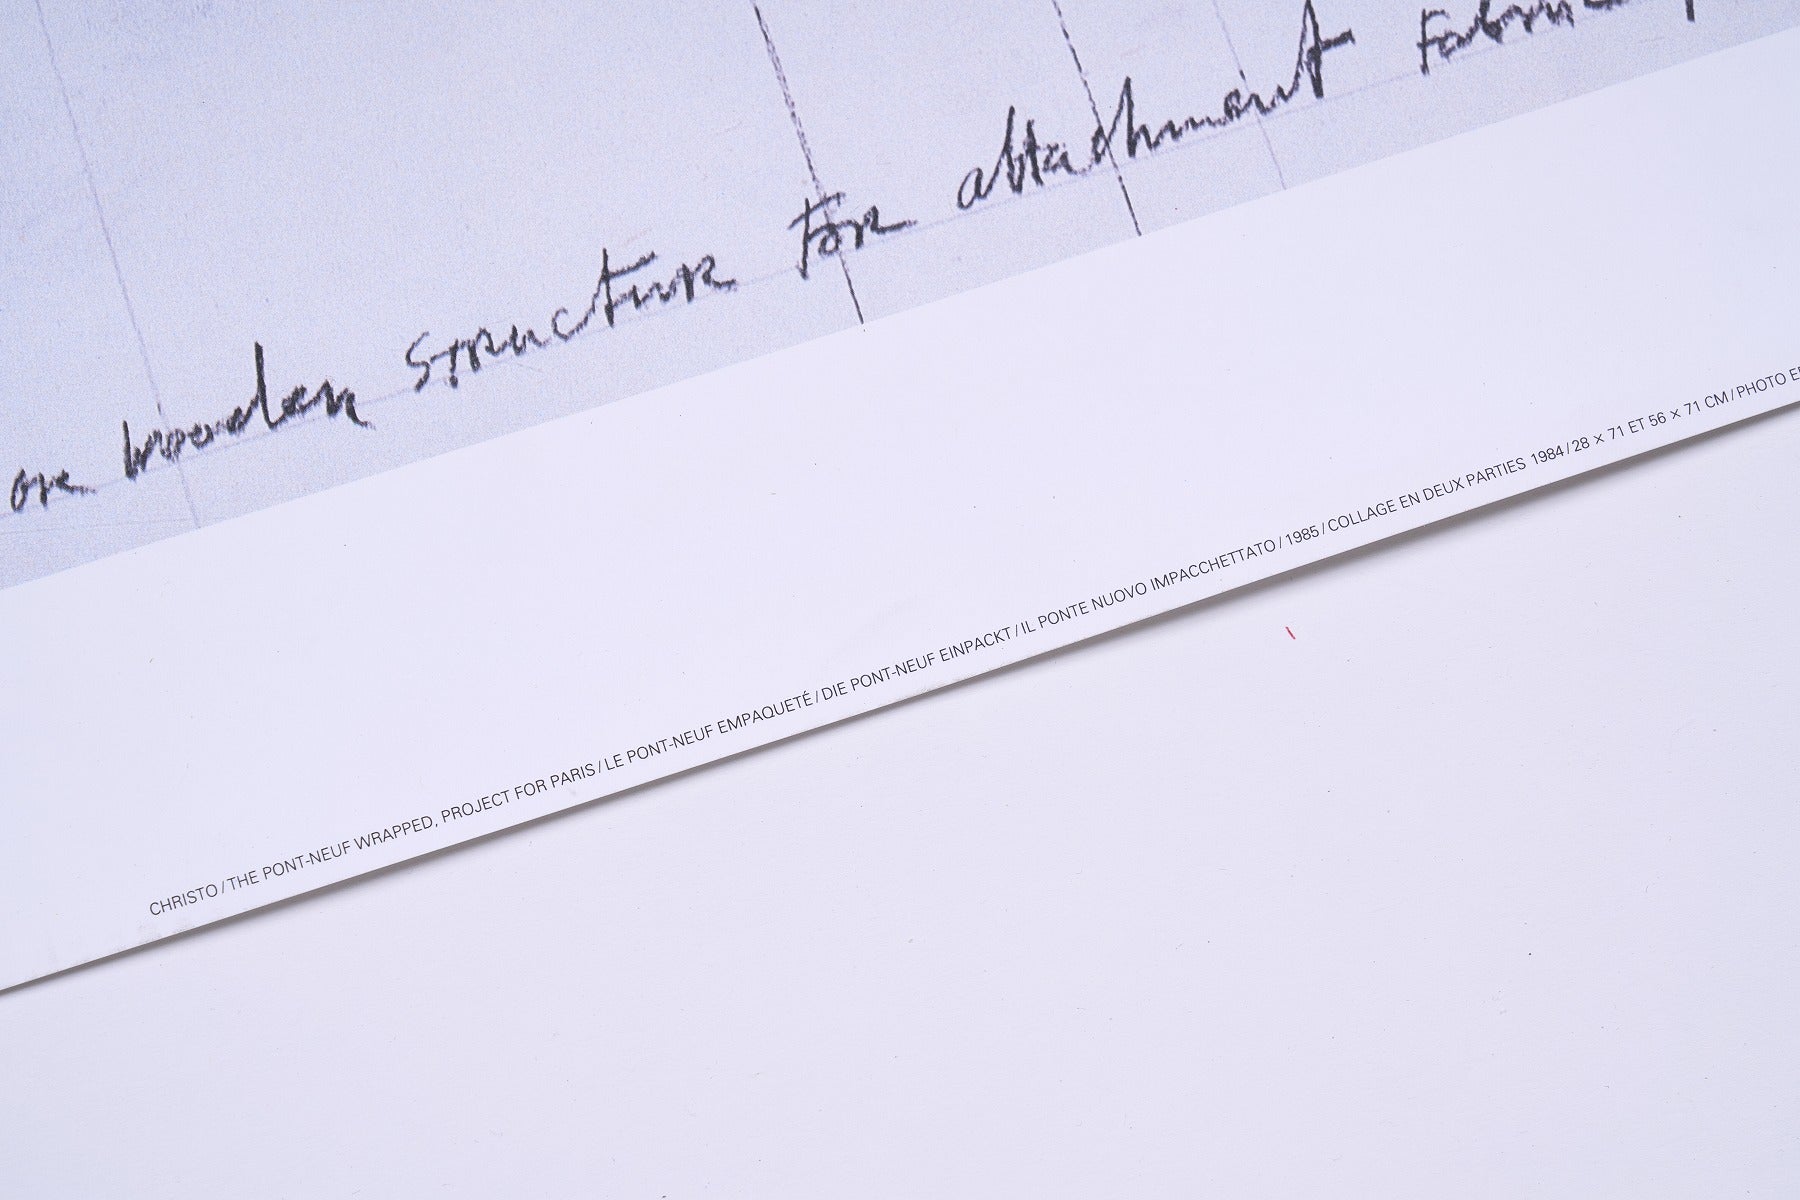 or wooden structure for attachment fabric
CHRISTO / THE PONT-NEUF WRAPPED, PROJECT FOR PARIS / LE PONT-NEUF EMPAQUETÉ / DIE PONT-NEUF EINPACKT / IL PONTE NUOVO IMPACCHETTATO / 1985 / COLLAGE EN DEUX PARTIES 1984 / 28 × 71 ET 56 × 71 CM / PHOTO